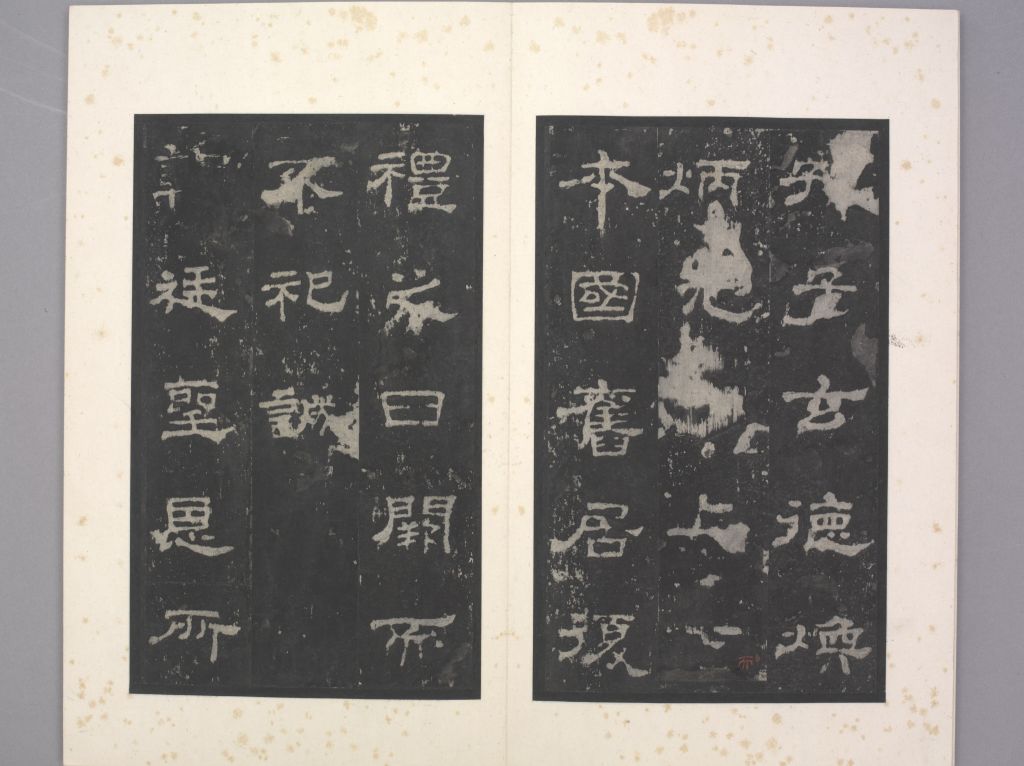 子玄德煥
炳光上下
本國舊居復
禮之日闕而
不祀誠
廷聖恩所